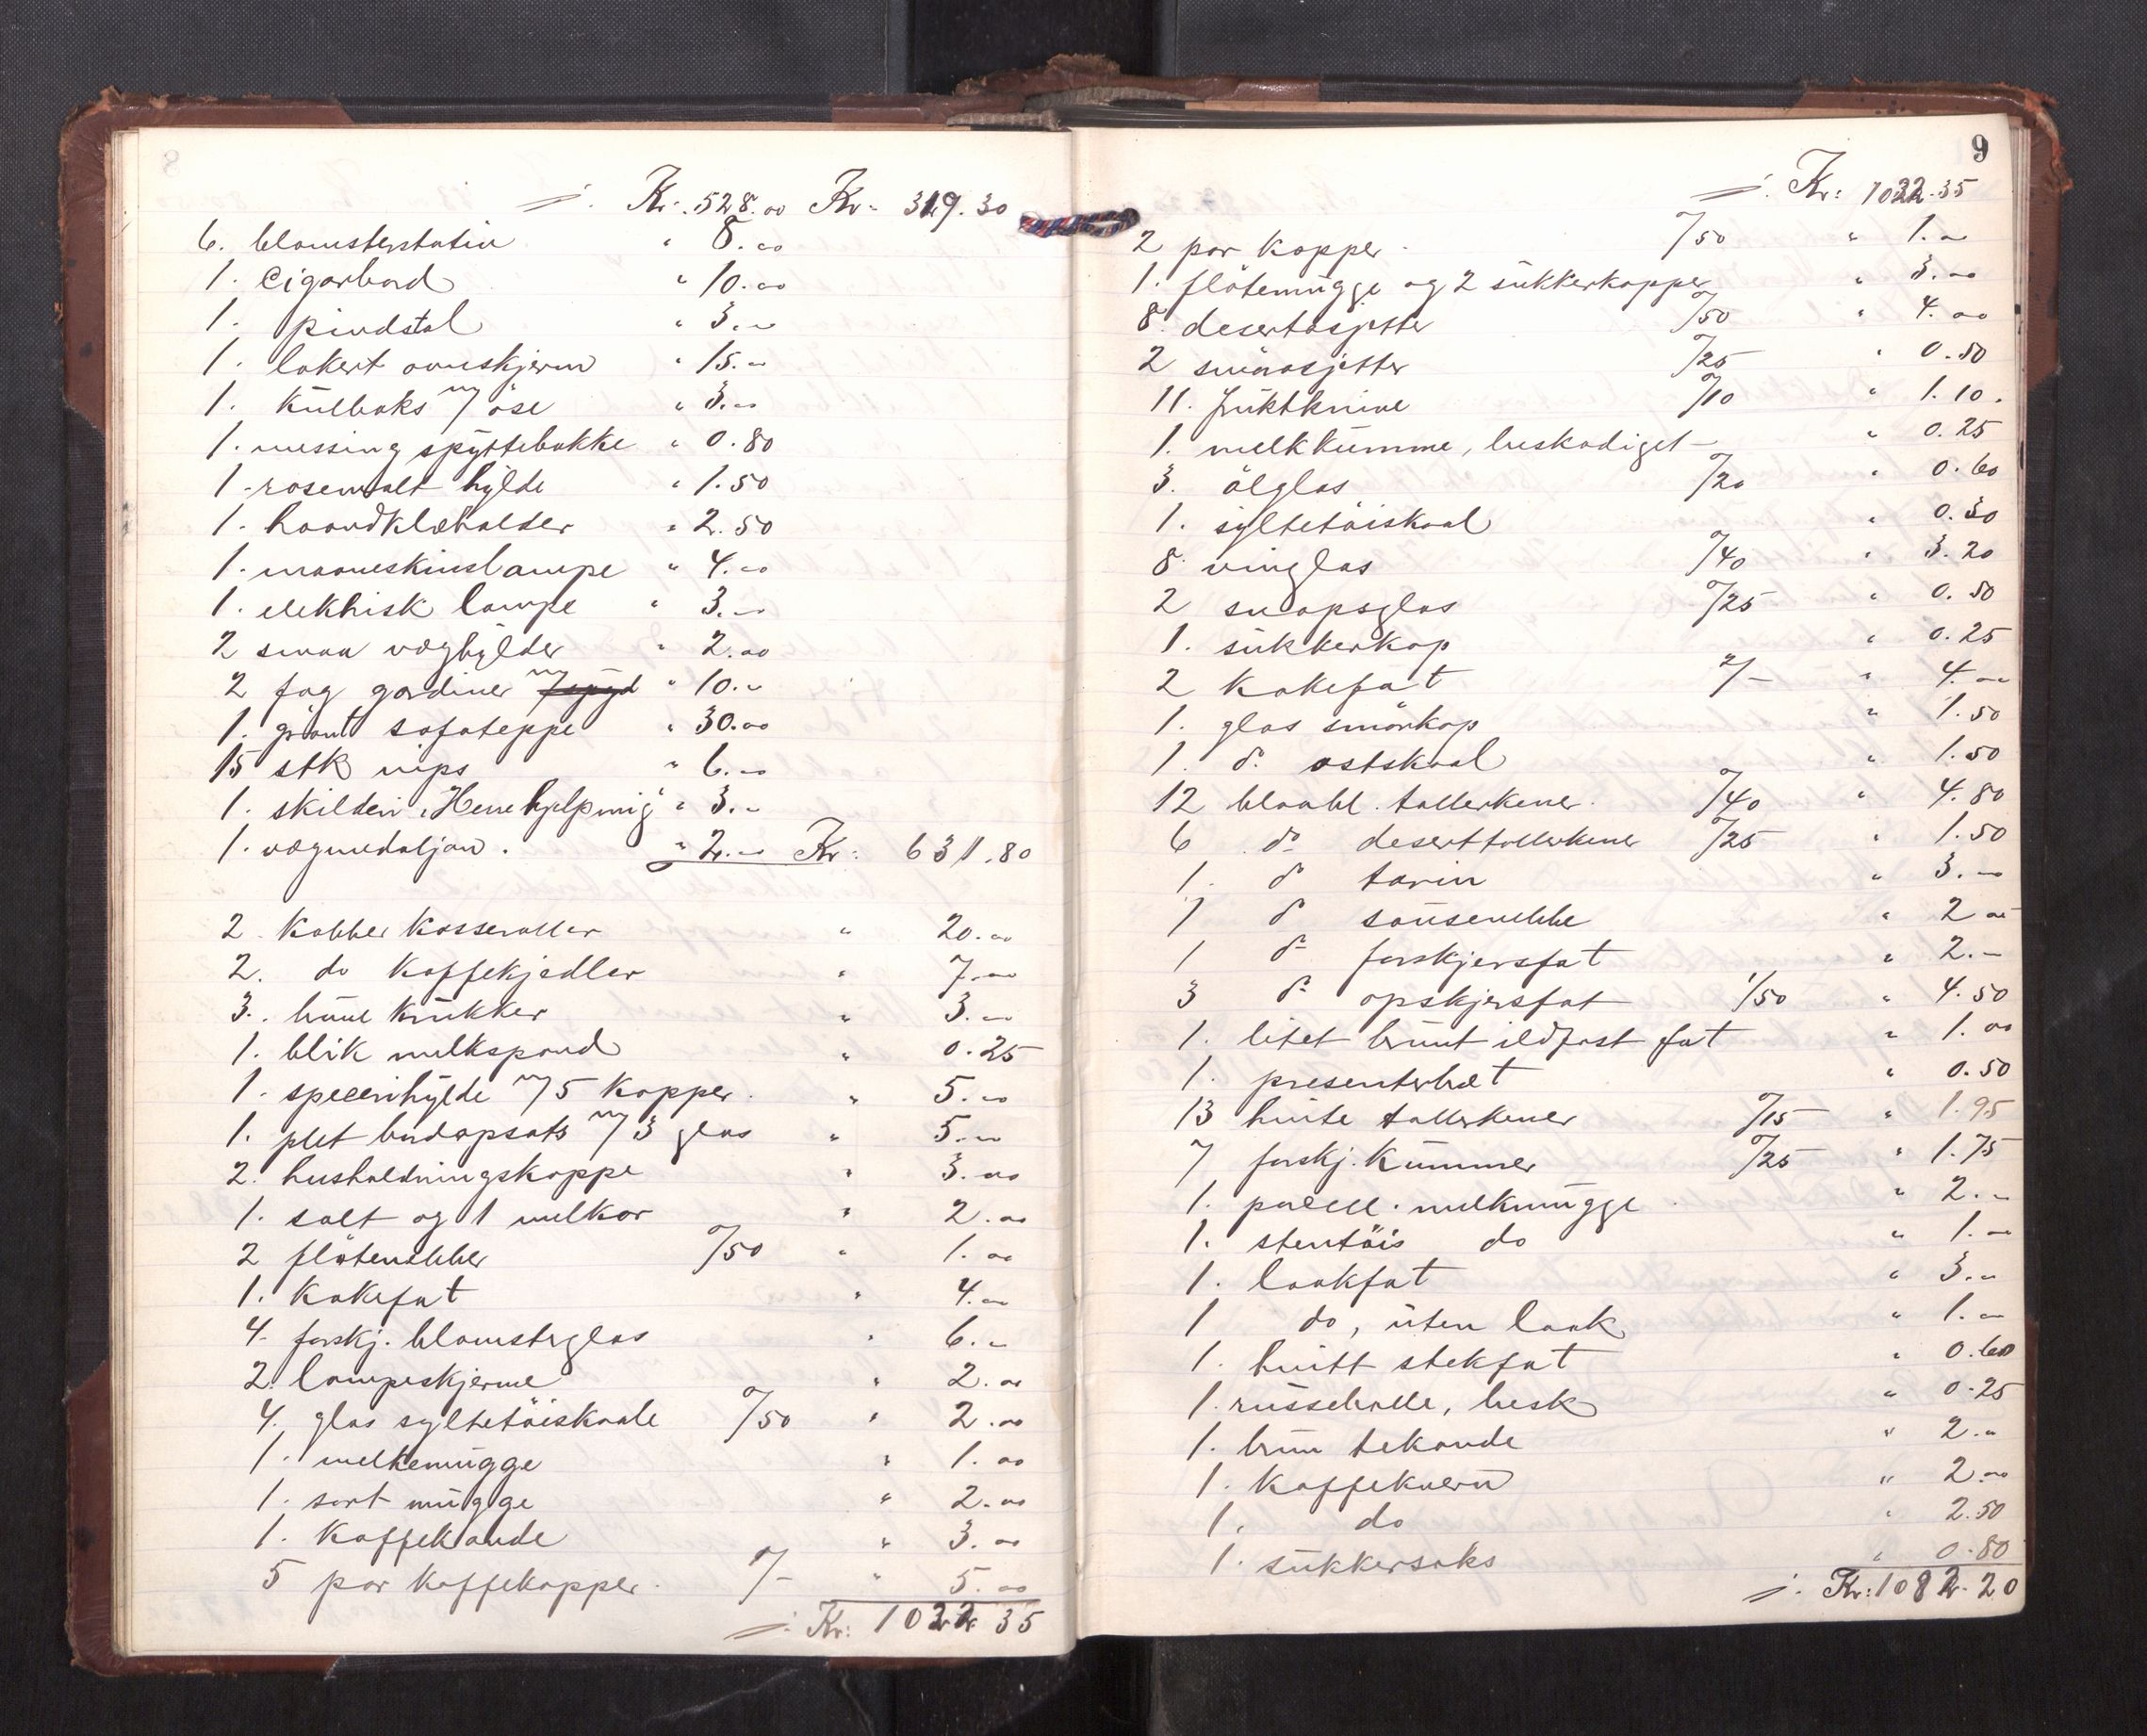 Kr: 528.00 Kr: 319.30
6. blomsterstativ " 8.00
1. Cigarbord " 10.00
1. pindstol " 3.00
1. lakert ovnskjerm " 15.00
1. Kulboks m/ öse " 3.00
1. messing spyttebakke " 0.80
1. rosemalt hylde " 1.50
1. haandklæholder " 2.50
1. maaneskinslampe " 4.00
1. elektrisk lampe " 3.00
2 smaa væghylder " 2.00
2 fag gardiner m/ " 10.00
1. grönt sofateppe " 30.00
15 stk nips " 6.00
1. skilderi "Herre hjelp mig" " 3.00
1. vægmedaljon. " 2.00 Kr: 631.80
2. Kobber Kasseroller " 20.00
2. do Kaffekjedler " 7.00
3. brune krukker " 3.00
1. blik melkspand " 0.25
1. specerihylde m/ 5 kopper. " 5.00
1. plet bordopsats m/ 3 glas " 5.00
2. husholdningskoppe " 3.00
1. salt og 1 melkar " 2.00
2 flötenebber 0/50 " 1.00
1. Kakefat " 4.00
4. forskj. blomsterglas " 6.00
2. lampeskjerme " 2.00
4. glas syltetöiskaale 0/50 " 2.00
1. melkemugge " 1.00
1. sort mugge " 2.00
1. Kaffekande " 3.00
5 par kaffekopper. 1/- " 5.00
Kr: 1032.35
9
Kr: 1032.35
2 par kopper. 0/50 " 1.00
1. flötemugge og 2 sukkerkopper " 3.00
8. desertasjetter 0/50 " 4.00
2 smaasjetter 0/25 " 0.50
11. fruktknive 0/10 " 1.10.
1. melkkumme, beskadiget " 0.25
3. ölglas 0/20 " 0.60
1. syltetöiskaal " 0.30
8. vinglas 0/40 " 3.20
2 snapsglas 0/25 " 0.50
1. sukkerkop " 0.25
2 Kakefat 2/- " 4.00
1. glas smörkop " 1.50
1. do ostskaal " 1.50
12 blaabl. tallerkener. 0/40 " 4.80
6 do deserttallerkener 0/25 " 1.50
1. do tarin " 3.00
1 do sausenebbe " 2.00
1 do forskjersfat " 2.00
3 do opskjersfat 1/50 " 4.50
1. litet brunt ildfast fat " 1.00
1. presenterbræt " 0.50
13 hvite tallerkener 0/15 " 1.95
7 forskj. Kummer 0/25 " 1.75
1. porcell. melkmugge. " 2.00
1. stentöis do " 1.00
1. laakfat " 3.00
1 do, uten laak " 1.00
1. hvitt stekfat " 0.60
1. russebolle, besk " 0.25
1. brun tekande " 2.00
1. Kaffekvern " 2.00
1. do " 2.50
1. sukkersaks " 0.80
Kr: 1082.20